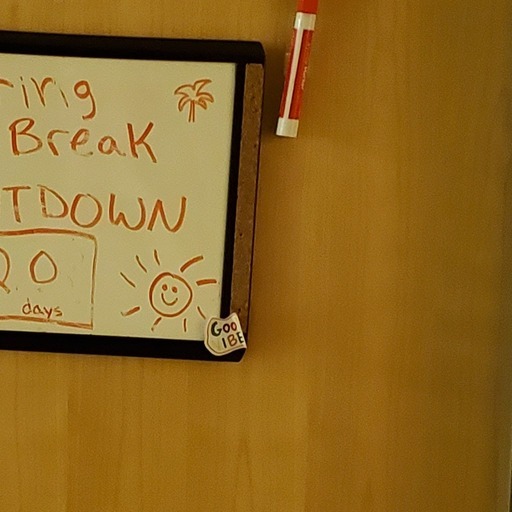 ring
Break
TDOWN
20
days
GOO
IBE